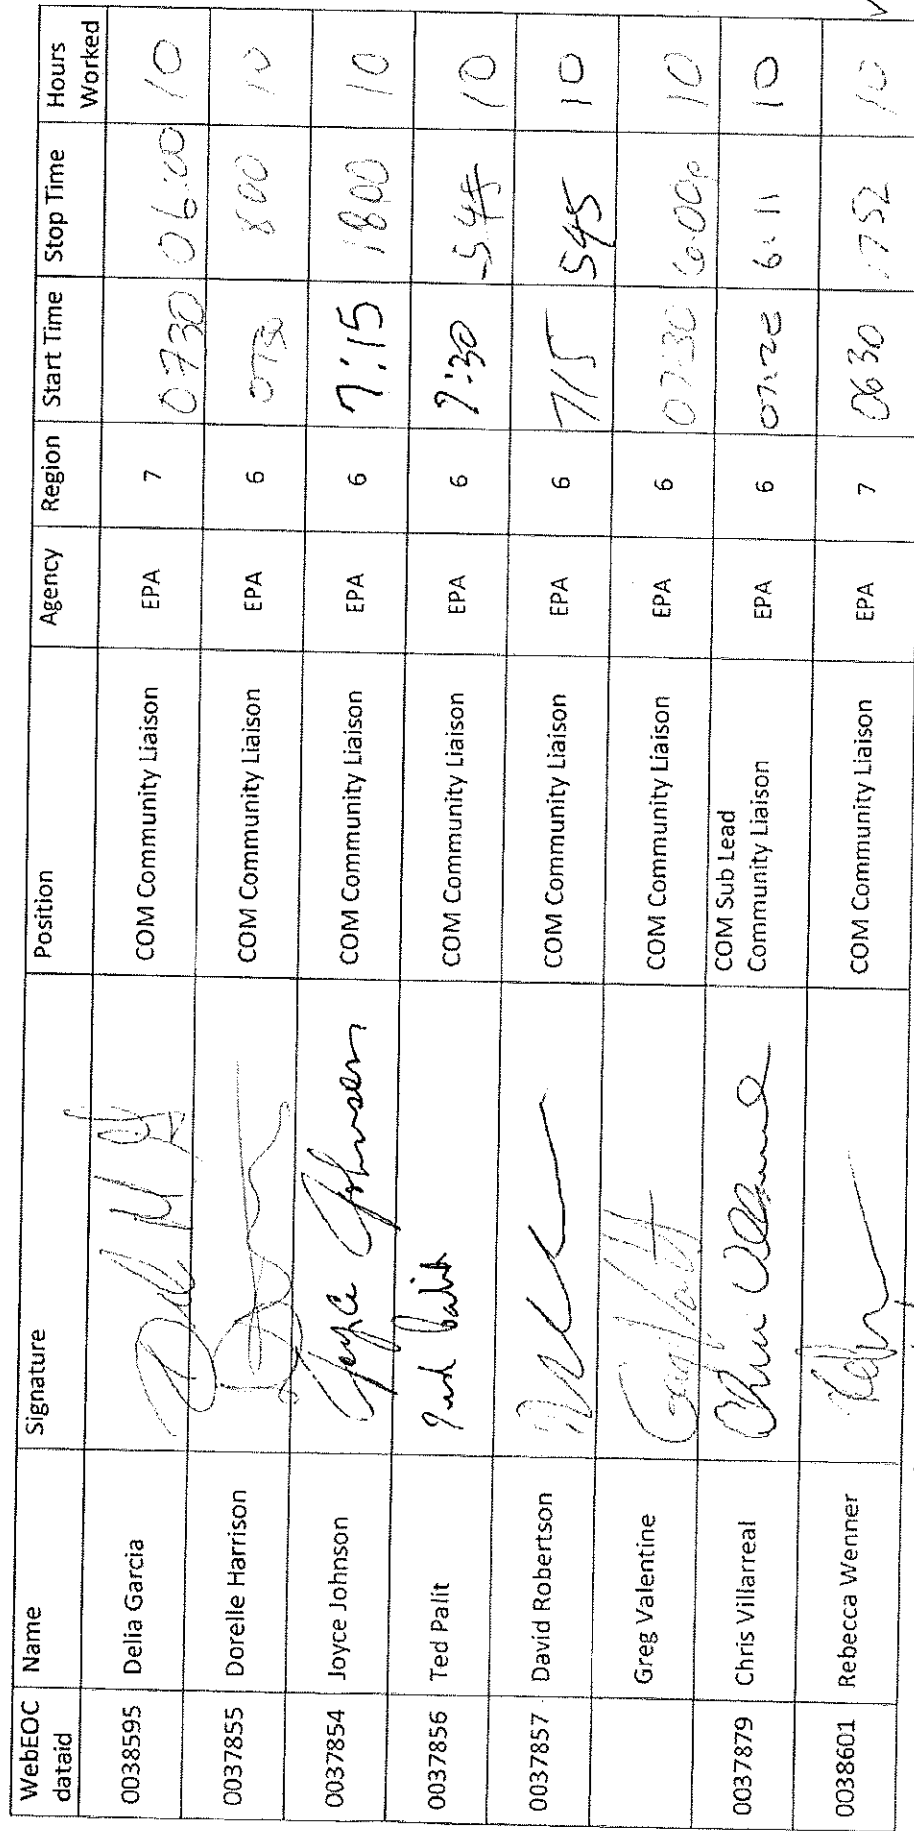 WebEOC dataid Name Signature Position Agency Region Start Time Stop Time Hours Worked
0038595 Delia Garcia COM Community Liaison EPA 7 0730 06:00 10
0037855 Dorelle Harrison COM Community Liaison EPA 6 0730 800 10
0037854 Joyce Johnson Joyce Johnson COM Community Liaison EPA 6 7:15 1800 10
0037856 Ted Palit Ted Palit COM Community Liaison EPA 6 7:30 545 10
0037857 David Robertson COM Community Liaison EPA 6 715 545 10
Greg Valentine COM Community Liaison EPA 6 07:30 6:00p 10
0037879 Chris Villarreal Chris Villarreal COM Sub Lead Community Liaison EPA 6 07:20 6:11 10
0038601 Rebecca Wenner COM Community Liaison EPA 7 0630 1752 10